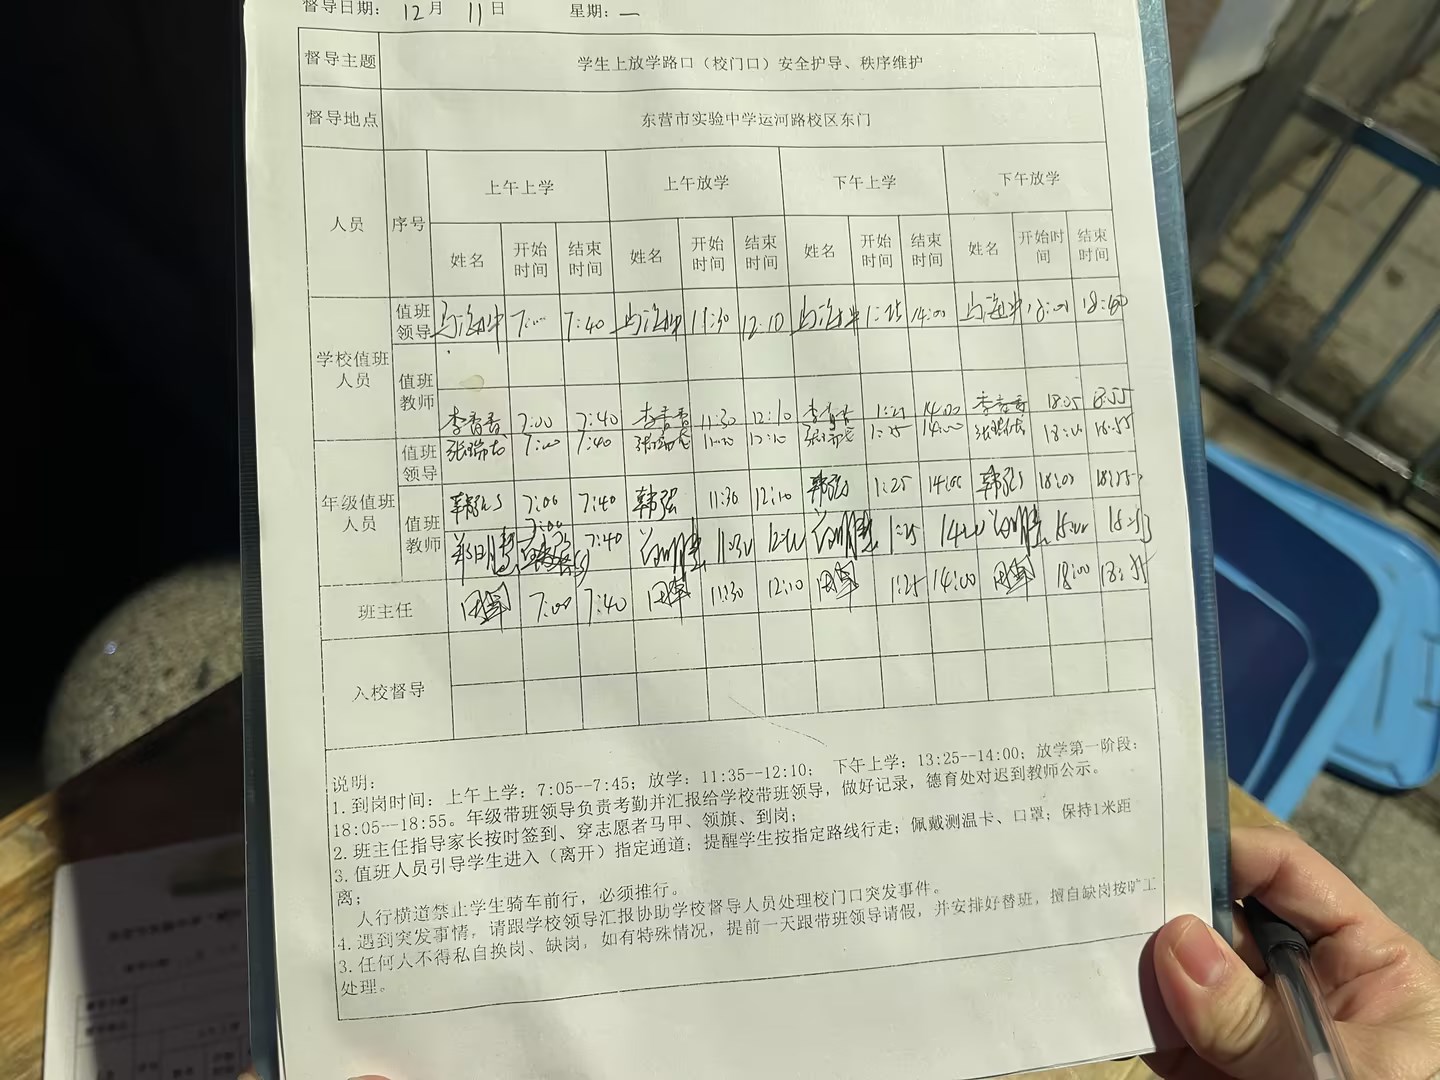 督导日期: 12月 11日 星期: 一
督导主题 学生上放学路口（校门口）安全护导、秩序维护
督导地点 东营市实验中学运河路校区东门
人员 序号 上午上学 上午放学 下午上学 下午放学
姓名 开始时间 结束时间 姓名 开始时间 结束时间 姓名 开始时间 结束时间 姓名 开始时间 结束时间
学校值班人员
值班领导 7:00 7:40 11:30 12:10 1:25 14:00 18:00
值班教师
李香香 7:00 7:40 李香香 11:30 12:10 李香香 14:00 李香香 18:05 18:55
年级值班人员
值班领导 张瑞志 7:00 7:40 张瑞志 12:10 张瑞志 1:25 14:00 张瑞志 18:00 18:55
值班教师 7:00 7:40 11:30 12:10 1:25 14:00 18:00 18:55
7:00
7:40 11:30 1:25
班主任 7:00 7:40 11:30 12:10 1:25 14:00 18:00 18:55
入校督导
说明:
1.到岗时间: 上午上学: 7:05--7:45; 放学: 11:35--12:10; 下午上学: 13:25--14:00; 放学第一阶段:
18:05--18:55。年级带班领导负责考勤并汇报给学校带班领导，做好记录，德育处对迟到教师公示。
2.班主任指导家长按时签到、穿志愿者马甲、领旗、到岗;
3.值班人员引导学生进入（离开）指定通道; 提醒学生按指定路线行走; 佩戴测温卡、口罩; 保持1米距
离;
人行横道禁止学生骑车前行，必须推行。
4.遇到突发事情，请跟学校领导汇报协助学校督导人员处理校门口突发事件。
3.任何人不得私自换岗、缺岗，如有特殊情况，提前一天跟带班领导请假，并安排好替班，擅自缺岗按旷工
处理。